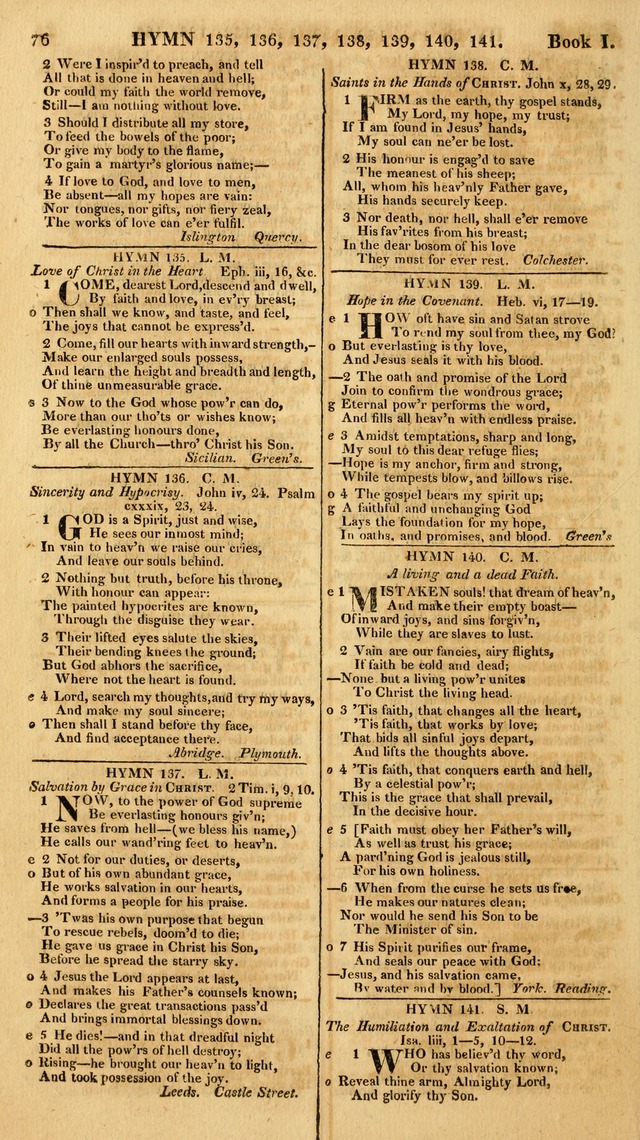 76 HYMN 135, 136, 137, 138, 139, 140, 141. Book I.
2 Were I inspir'd to preach, and tell
All that is done in heaven and hell;
Or could my faith the world remove,
Still—I am nothing without love.
3 Should I distribute all my store,
To feed the bowels of the poor;
Or give my body to the flame,
To gain a martyr's glorious name;—
4 If love to God, and love to men,
Be absent—all my hopes are vain:
Nor tongues, nor gifts, nor fiery zeal,
The works of love can e'er fulfil.
Islington Quercy.
HYMN 135. L. M.
Love of Christ in the Heart Eph. iii, 16, &c.
1 COME, dearest Lord, descend and dwell,
By faith and love, in ev'ry breast;
o Then shall we know, and taste, and feel,
The joys that cannot be express'd.
2 Come, fill our hearts with inward strength,-
Make our enlarged souls possess,
And learn the height and breadth and length,
Of thine unmeasurable grace.
s 3 Now to the God whose pow'r can do,
More than our tho'ts or wishes know;
Be everlasting honours done,
By all the Church—thro' Christ his Son.
Sicilian. Green's.
HYMN 136. C. M.
Sincerity and Hypocrisy. John iv, 24. Psalm
cxxxix, 23, 24.
1 GOD is a Spirit, just and wise,
He sees our inmost mind;
In vain to heav'n we raise our cries,
And leave our souls behind.
2 Nothing but truth, before his throne,
With honour can appear:
The painted hypocrites are known,
Through the disguise they wear.
3 Their lifted eyes salute the skies,
Their bending knees the ground;
But God abhors the sacrifice,
Where not the heart is found.
e 4 Lord, search my thoughts, and try my ways,
And make my soul sincere;
o Then shall I stand before thy face,
And find acceptance there.
Abridge. Plymouth.
HYMN 137. L. M.
Salvation by Grace in CHRIST. 2 Tim. i, 9, 10.
1 NOW, to the power of God supreme
Be everlasting honours giv'n;
He saves from hell—(we bless his name,)
He calls our wand'ring feet to heav'n.
e 2 Not for our duties, or deserts,
o But of his own abundant grace,
He works salvation in our hearts,
And forms a people for his praise.
—3 'Twas his own purpose that begun
To rescue rebels, doom'd to die;
He gave us grace in Christ his Son,
Before he spread the starry sky.
o 4 Jesus the Lord appears at last,
And makes his Father's counsels known;
o Declares the great transactions pass'd
And brings immortal blessings down.
e 5 He dies!—and in that dreadful night
Did all the pow'rs of hell destroy;
o Rising—he brought our heav'n to light,
And took possession of the joy.
Leeds. Castle Street.
HYMN 138. C. M.
Saints in the Hands of CHRIST. John x, 28, 29.
1 FIRM as the earth, thy gospel stands,
My Lord, my hope, my trust;
If I am found in Jesus' hands,
My soul can ne'er be lost.
2 His honour is engag'd to save
The meanest of his sheep;
All, whom his heav'nly Father gave,
His hands securely keep.
3 Nor death, nor hell, shall e'er remove
His fav'rites from his breast;
In the dear bosom of his love
They must for ever rest. Colchester.
HYMN 139. L. M.
Hope in the Covenant. Heb. vi, 17—19.
e 1 HOW oft have sin and Satan strove
To rend my soul from thee, my God?
o But everlasting is thy love,
And Jesus seals it with his blood.
—2 The oath and promise of the Lord
Join to confirm the wondrous grace;
g Eternal pow'r performs the word,
And fills all heav'n with endless praise.
e 3 Amidst temptations, sharp and long,
My soul to this dear refuge flies;
—Hope is my anchor, firm and strong,
While tempests blow, and billows rise.
o 4 The gospel bears my spirit up;
g A faithful and unchanging God
Lays the foundation for my hope,
In oaths, and promises, and blood. Green's
HYMN 140. C. M.
A living and a dead Faith.
e 1 MISTAKEN souls! that dream of heav'n,
And make their empty boast—
Of inward joys, and sins forgiv'n,
While they are slaves to lust.
2 Vain are our fancies, airy flights,
If faith be cold and dead;
—None but a living pow'r unites
To Christ the living head.
o 3 'Tis faith, that changes all the heart,
'Tis faith, that works by love;
That bids all sinful joys depart,
And lifts the thoughts above.
o 4 'Tis faith, that conquers earth and hell,
By a celestial pow'r;
This is the grace that shall prevail,
In the decisive hour.
e 5 [Faith must obey her Father's will,
As well as trust his grace;
A pard'ning God is jealous still,
For his own holiness.
—6 When from the curse he sets us free,
He makes our natures clean;
Nor would he send his Son to be
The Minister of sin.
o 7 His Spirit purifies our frame,
And seals our peace with God;
—Jesus, and his salvation came,
By water and by blood.] York. Reading.
HYMN 141. S. M
The Humiliation and Exaltation of CHRIST.
Isa. liii, 1—5, 10—12.
e 1 WHO has believ'd thy word,
Or thy salvation known;
o Reveal thine arm, Almighty Lord,
And glorify thy Son.